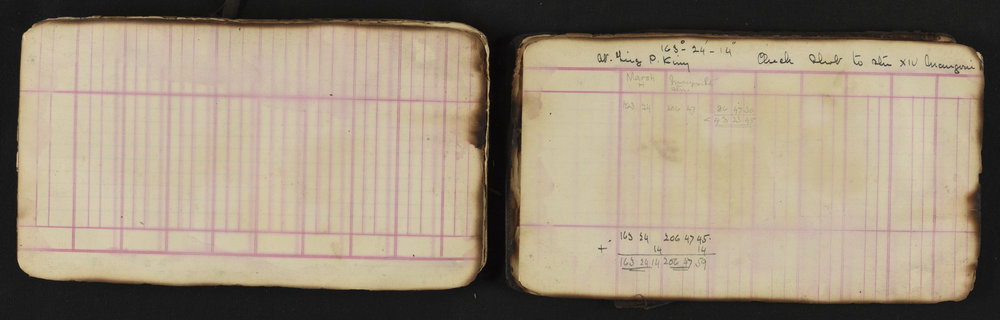 163° 24' 14"
at King P. King Check Shot to stn XIV
March
163 24 206 47 86 47 30
< 43 23 45
163 24 206 47 45
+ 14 14
163 24 14 206 47 59